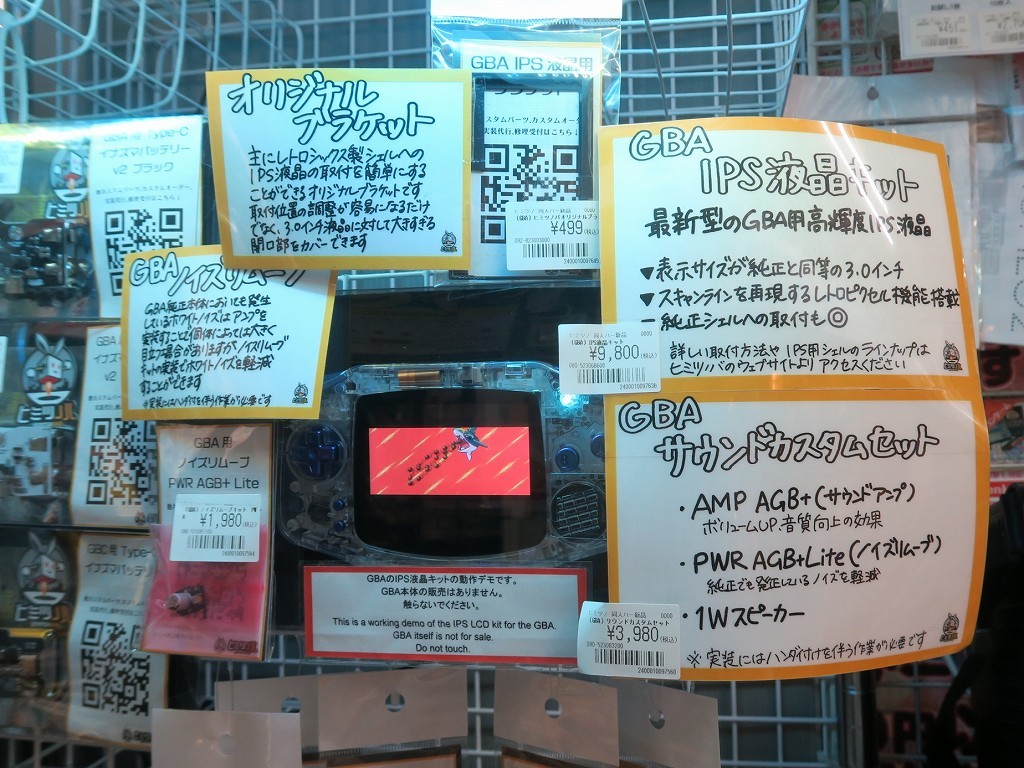 GBA IPS 液晶用
スタムパーツ、カスタムオーダ
実装代行、修理受付はこちら↓
ヒミツノ 同人ハー新品 0000
¥499(税込)
オリジナル
ブラケット
主にレトロシックス製シェルへの
IPS液晶の取付を簡単にする
ことができるオリジナルブラケットです
取付位置の調整が容易になるだけ
でなく、3.0インチ液晶に対して大きすぎる
開口部をカバーできます
GBA用 Type-C
イナズマバッテリー
v2 ブラック
GBAノイズリムーブ
GBA純正本体においても発生
しているホワイトノイズはアンプを
実装することで個体によっては大きく
目立つ場合がありますが、ノイズリムーブ
キットの実装でホワイトノイズを軽減
することができます
※実装にはハンダ付けを伴う作業が必要です
GBA
IPS液晶キット
最新型のGBA用高輝度IPS液晶
▼表示サイズが純正と同等の3.0インチ
▼スキャンラインを再現するレトロピクセル機能搭載
純正シェルへの取付も◎
詳しい取付方法やIPS用シェルのラインナップは
ヒミツノバのウェブサイトよりアクセスください
ヒミツノ 同人ハー新品 0000
(GBA) IPS液晶キット
¥9,800(税込)
2400010097636
GBA用
ノイズリムーブ
PWR AGB+ Lite
¥1,980(税込)
2400010097584
GBA
サウンドカスタムセット
・AMP AGB+(サウンドアンプ)
ボリュームUP、音質向上の効果
・PWR AGB+Lite(ノイズリムーブ)
純正でも発生しているノイズを軽減
・1Wスピーカー
※実装にはハンダ付けを伴う作業が必要です
ヒミツノ 同人ハー新品 0000
(GBA) サウンドカスタムセット
¥3,980(税込)
2400010097560
GBAのIPS液晶キットの動作デモです。
GBA本体の販売はありません。
触らないでください。
This is a working demo of the IPS LCD kit for the GBA.
GBA itself is not for sale.
Do not touch.
GBC用 Type-
イナズマバッテ